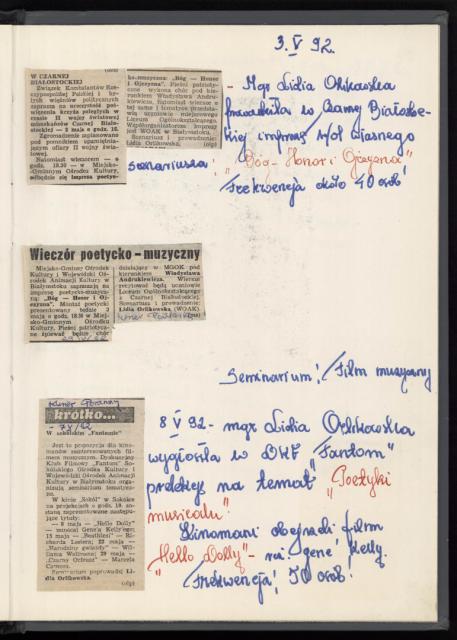 3.V 92.
W CZARNEJ
BIAŁOSTOCKIEJ
Związek Kombatantów Rze-
czypospolitej Polskiej i by-
łych więźniów politycznych
zaprasza na uroczystość po-
święcenia
czasie II wojny światowej
mieszkańców Czarnej Biało-
stockiej — 3 maja o godz. 16.
Zgromadzenie zaplanowano
pod pomnikiem upamiętnia-
jącym ofiary II wojny świa-
towej.
Natomiast wieczorem — o
godz. 18.30 — w Miejsko-
-Gminnym Ośrodku Kultury,
odbędzie się impreza poetyc-
ko-muzyczna: „Bóg — Honor
i Ojczyzna". Pieśni patriotycz-
ne wykona chór pod kie-
runkiem Władysława Andru-
kiewicza. Natomiast wiersze o
tej samej tematyce przedsta-
wią uczniowie miejscowego
Liceum Ogólnokształcącego.
Współorganizatorem imprezy
jest WOAK w Białymstoku.
Scenariusz i prowadzenie:
Lidia Orlikowska. (olp)
- Mgr Lidia Orlikowska
prowadziła w Czarnej Białostoc-
kiej imprezę wg własnego
scenariusza: "Bóg - Honor i Ojczyzna"
Frekwencja około 40 osób!
Wieczór poetycko-muzyczny
Miejsko-Gminny Ośrodek
Kultury i Wojewódzki Oś-
rodek Animacji Kultury w
Białymstoku zapraszają na
imprezę poetycko-muzycz-
ną: „Bóg — Honor i Oj-
czyzna". Montaż poetycki
prezentowany będzie 3
maja o godz. 18.30 w Miej-
sko-Gminnym Ośrodku
Kultury. Pieśni patriotycz-
ne śpiewać będzie chór
działający w MGOK pod
kierunkiem Władysława
Andrukiewicza. Wiersze
recytować będą uczniowie
Liceum Ogólnokształcącego
z Czarnej Białostockiej.
Scenariusz i prowadzenie:
Lidia Orlikowska (WOAK)
Seminarium! / Film muzyczny
Kurier Poranny
krótko...
W sokólskim „Fantomie"
Jest to propozycja dla kino-
manów zainteresowanych fil-
mem muzycznym. Dyskusyjny
Klub Filmowy „Fantom" So-
kólskiego Ośrodka Kultury i
Wojewódzki Ośrodek Animacji
Kultury w Białymstoku orga-
nizują seminarium tematycz-
ne.
W kinie „Sokół" w Sokółce
na projekcjach o godz. 19. zo-
staną zaprezentowane następu-
jące tytuły:
— 8 maja — „Hello Dolly"
— musical Gene'a Kelly'ego;
15 maja — „Beatlesi" — Ri-
charda Lestera; 22 maja —
„Narodziny gwiazdy" — Wil-
liama Wellmana; 29 maja —
„Czarny Orfeusz" — Marcela
Camusa.
Seminarium poprowadzi Li-
dia Orlikowska. (olp)
8 V 92- mgr Lidia Orlikowska
wygłosiła w DKF "Fantom"
prelekcję na temat "Poetyki
musicalu".
Kinomani obejrzeli film
"Hello Dolly" - reż. gene' Kelly.
Frekwencja! 50 osób!